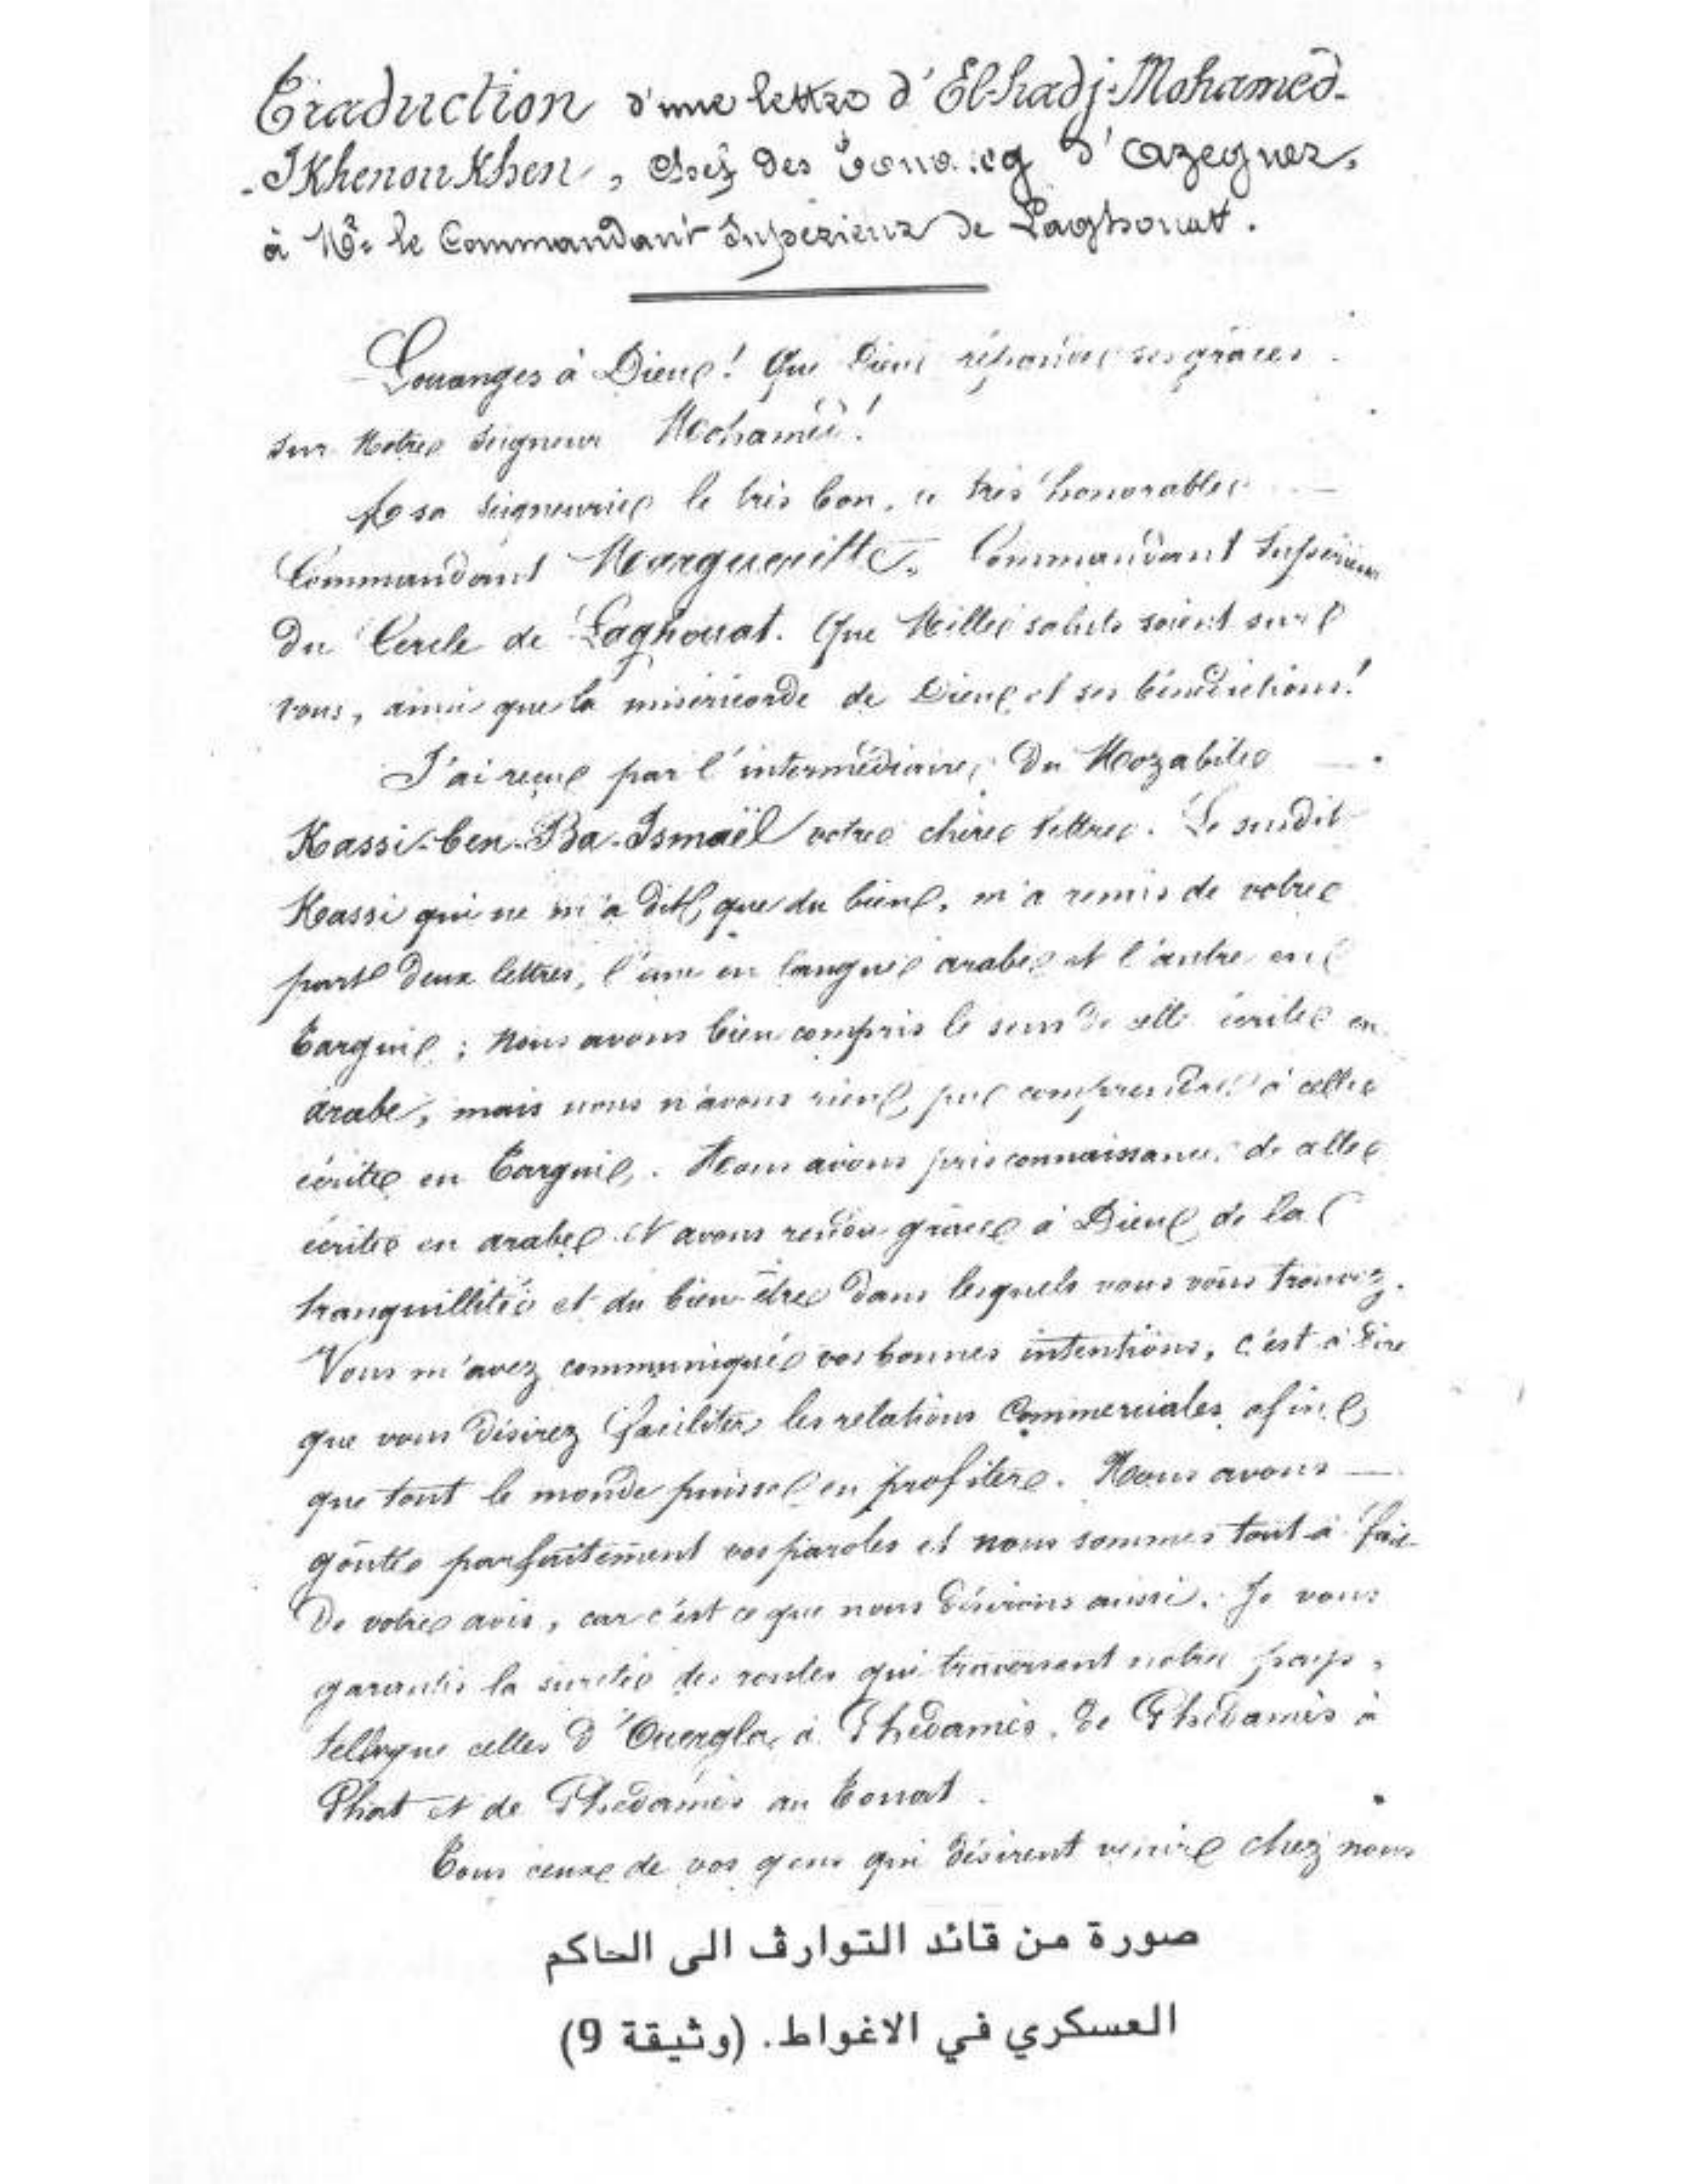 Traduction d'une lettre d'El-hadj-Mohamed-
-IKhenouKhen, Chef des Touareg d'Azeguer,
à Mr. le Commandant Supérieur de Laghouat.
Louanges à Dieu! Que Dieu répande ses grâces
sur Notre Seigneur Mohamed!
A sa seigneurie le très bon, le très honorable
Commandant Margueritte, Commandant Supérieur
du Cercle de Laghouat. Que Mille saluts soient sur
vous, ainsi que la miséricorde de Dieu et ses bénédictions!
J'ai reçu par l'intermédiaire du Mozabite
Kassi-ben-Ba-Ismaël votre chère lettre. Le susdit
Kassi qui ne m'a dit que du bien, m'a remis de votre
part deux lettres, l'une en langue arabe et l'autre en
Targui; Nous avons bien compris le sens de celle écrite en
arabe, mais nous n'avons rien pu comprendre à celle
écrite en Targui. Nous avons pris connaissance de celle
écrite en arabe et avons rendu grâce à Dieu de la
tranquillité et du bien-être dans lesquels vous vous trouvez.
Vous m'avez communiqué vos bonnes intentions, c'est à dire
que vous désirez faciliter les relations Commerciales afin
que tout le monde puisse en profiter. Nous avons
goûté parfaitement vos paroles et nous sommes tout à fait
de votre avis, car c'est ce que nous désirons aussi. Je vous
garantis la sureté des routes qui traversent notre pays,
telles que celles d'Ouergla à Ghedamès, de Ghedamès à
Ghat et de Ghedamès au Touat.
Tous ceux de vos gens qui désirent venir chez nous
صورة من قائد التوارڤ الى الحاكم
العسكري في الاغواط. (وثيقة 9)